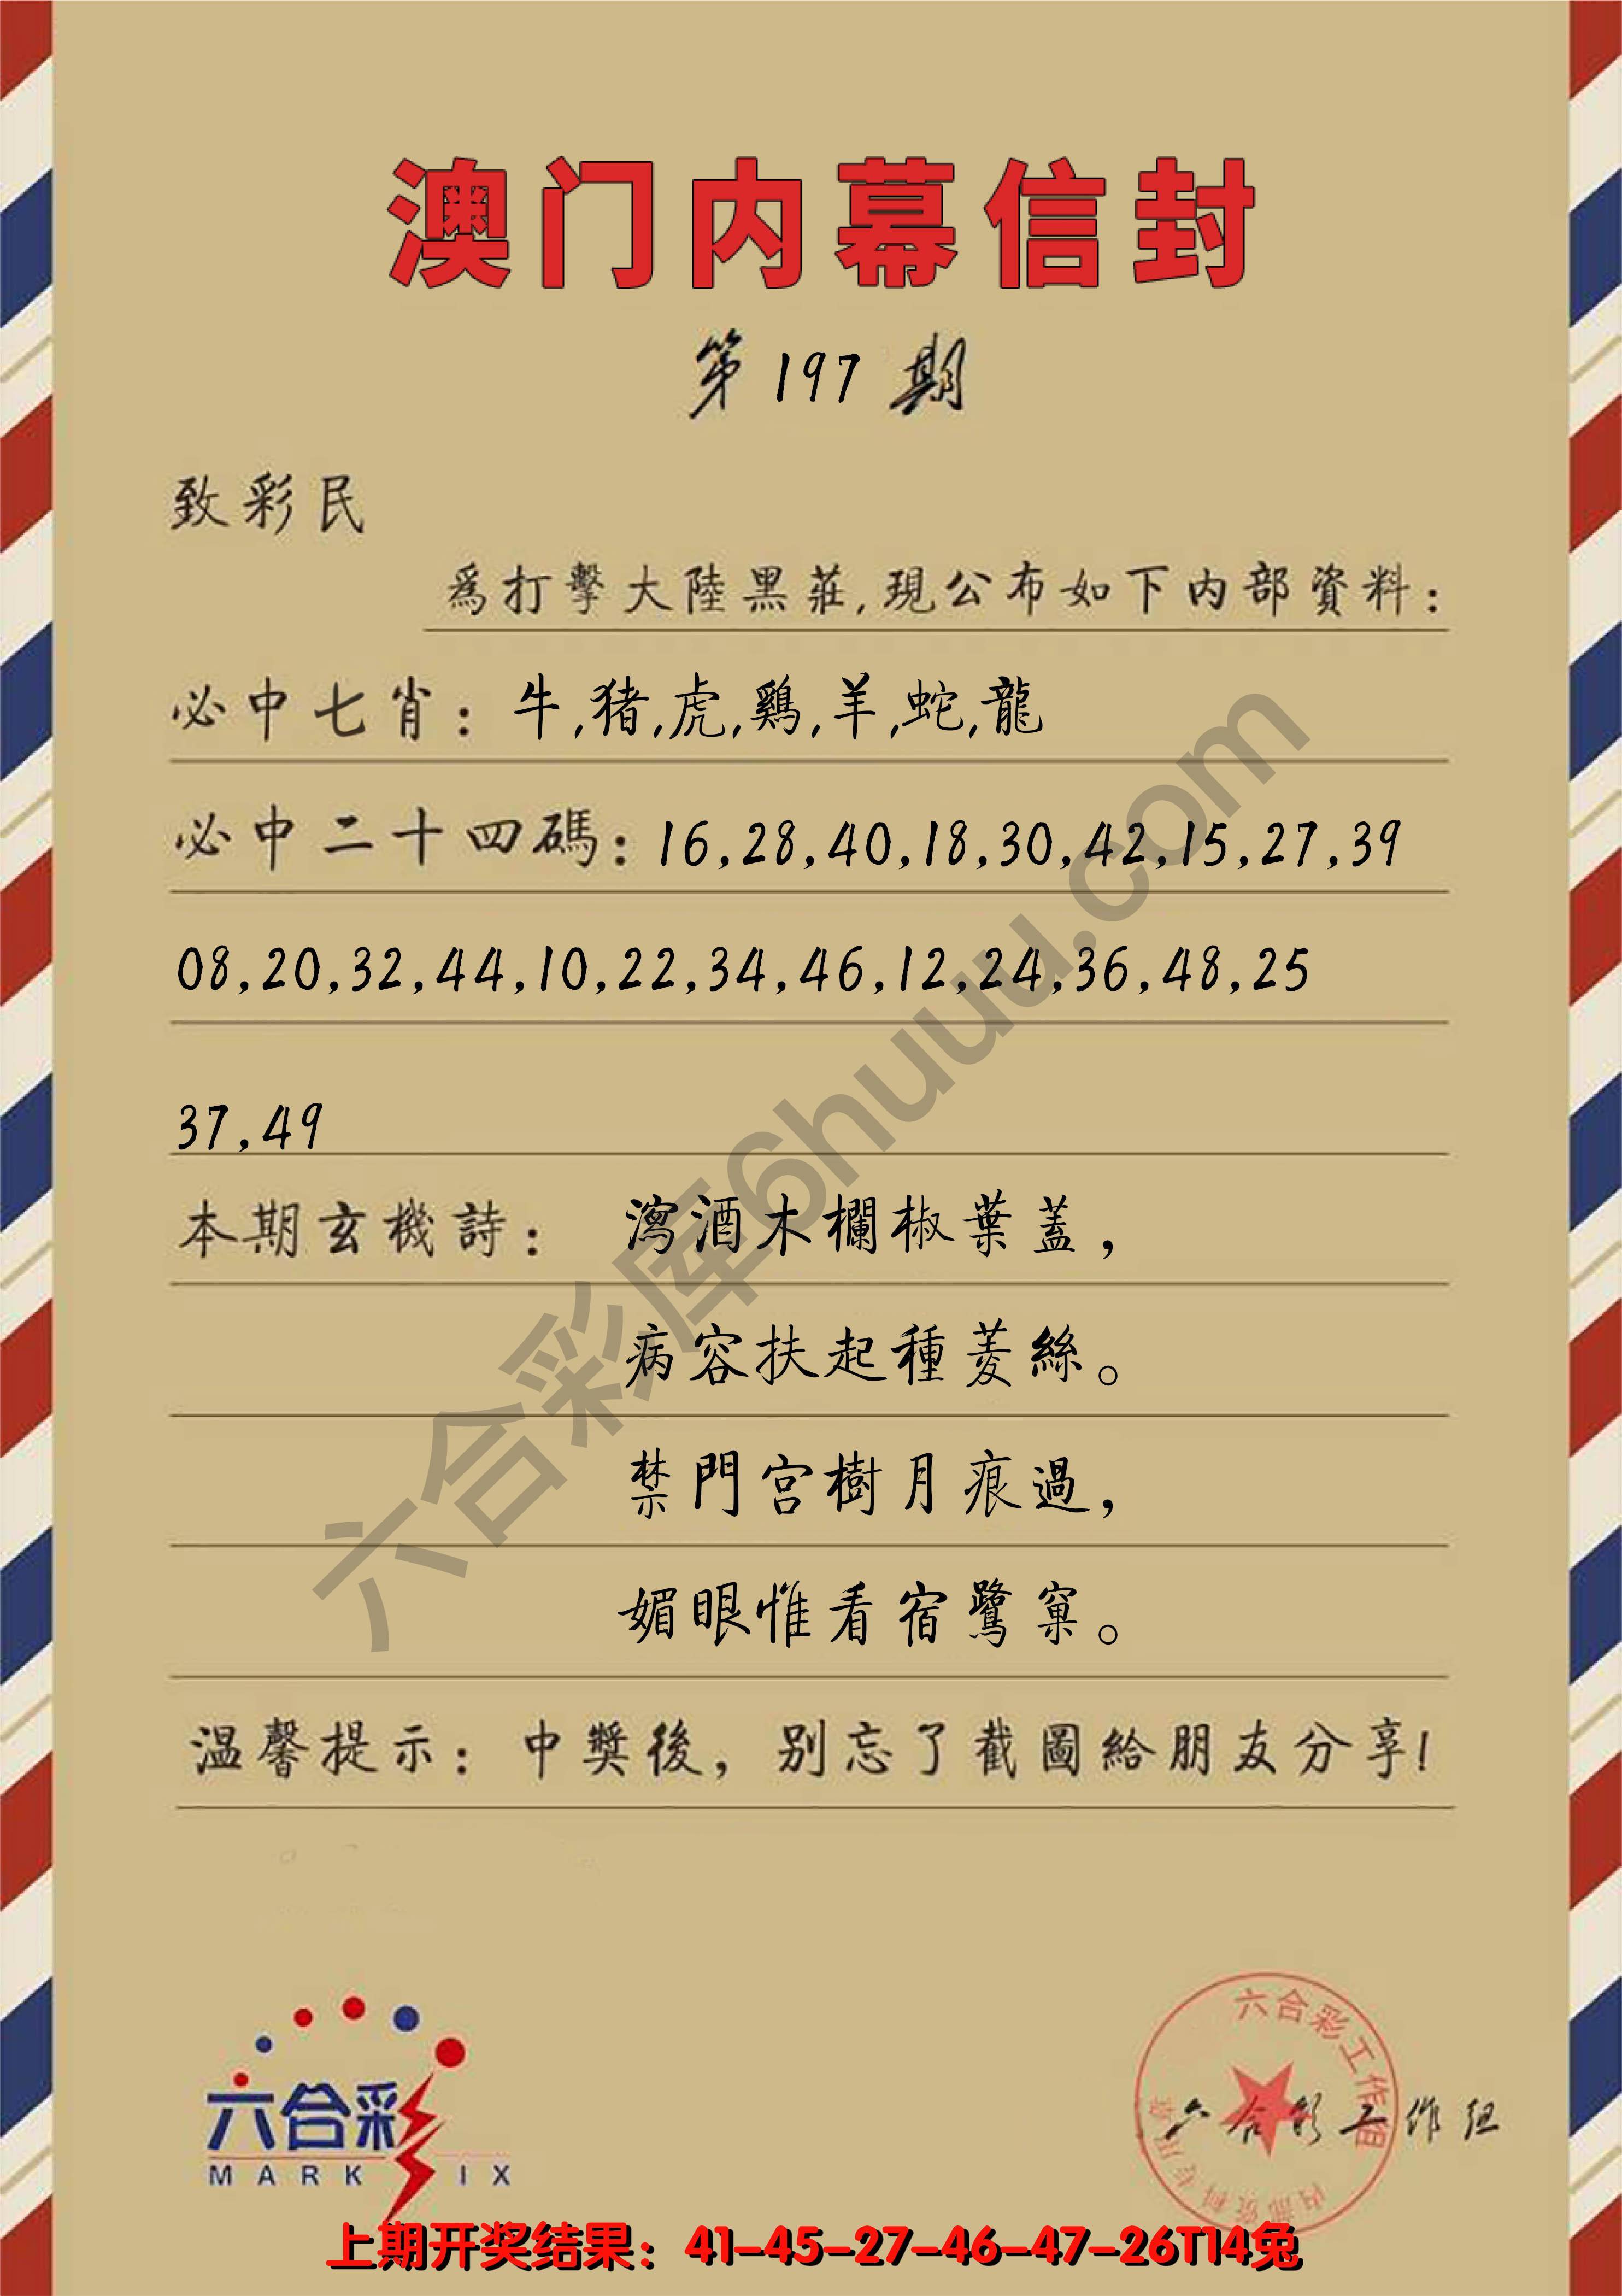 澳门内幕信封
第 197 期
致彩民
為打擊大陸黑莊,現公布如下内部資料:
必中七肖: 牛,猪,虎,鷄,羊,蛇,龍
必中二十四碼: 16,28,40,18,30,42,15,27,39
08,20,32,44,10,22,34,46,12,24,36,48,25
37,49
本期玄機詩: 瀉酒木欄椒葉蓋,
病容扶起種菱絲。
禁門宮樹月痕過,
媚眼惟看宿鷺窠。
温馨提示: 中獎後, 别忘了截圖給朋友分享!
六合彩库6huuu.com
六合彩
MARK IX
六合彩工作组
内部资料专用章
六合彩工作组
上期开奖结果: 41-45-27-46-47-26T14兔